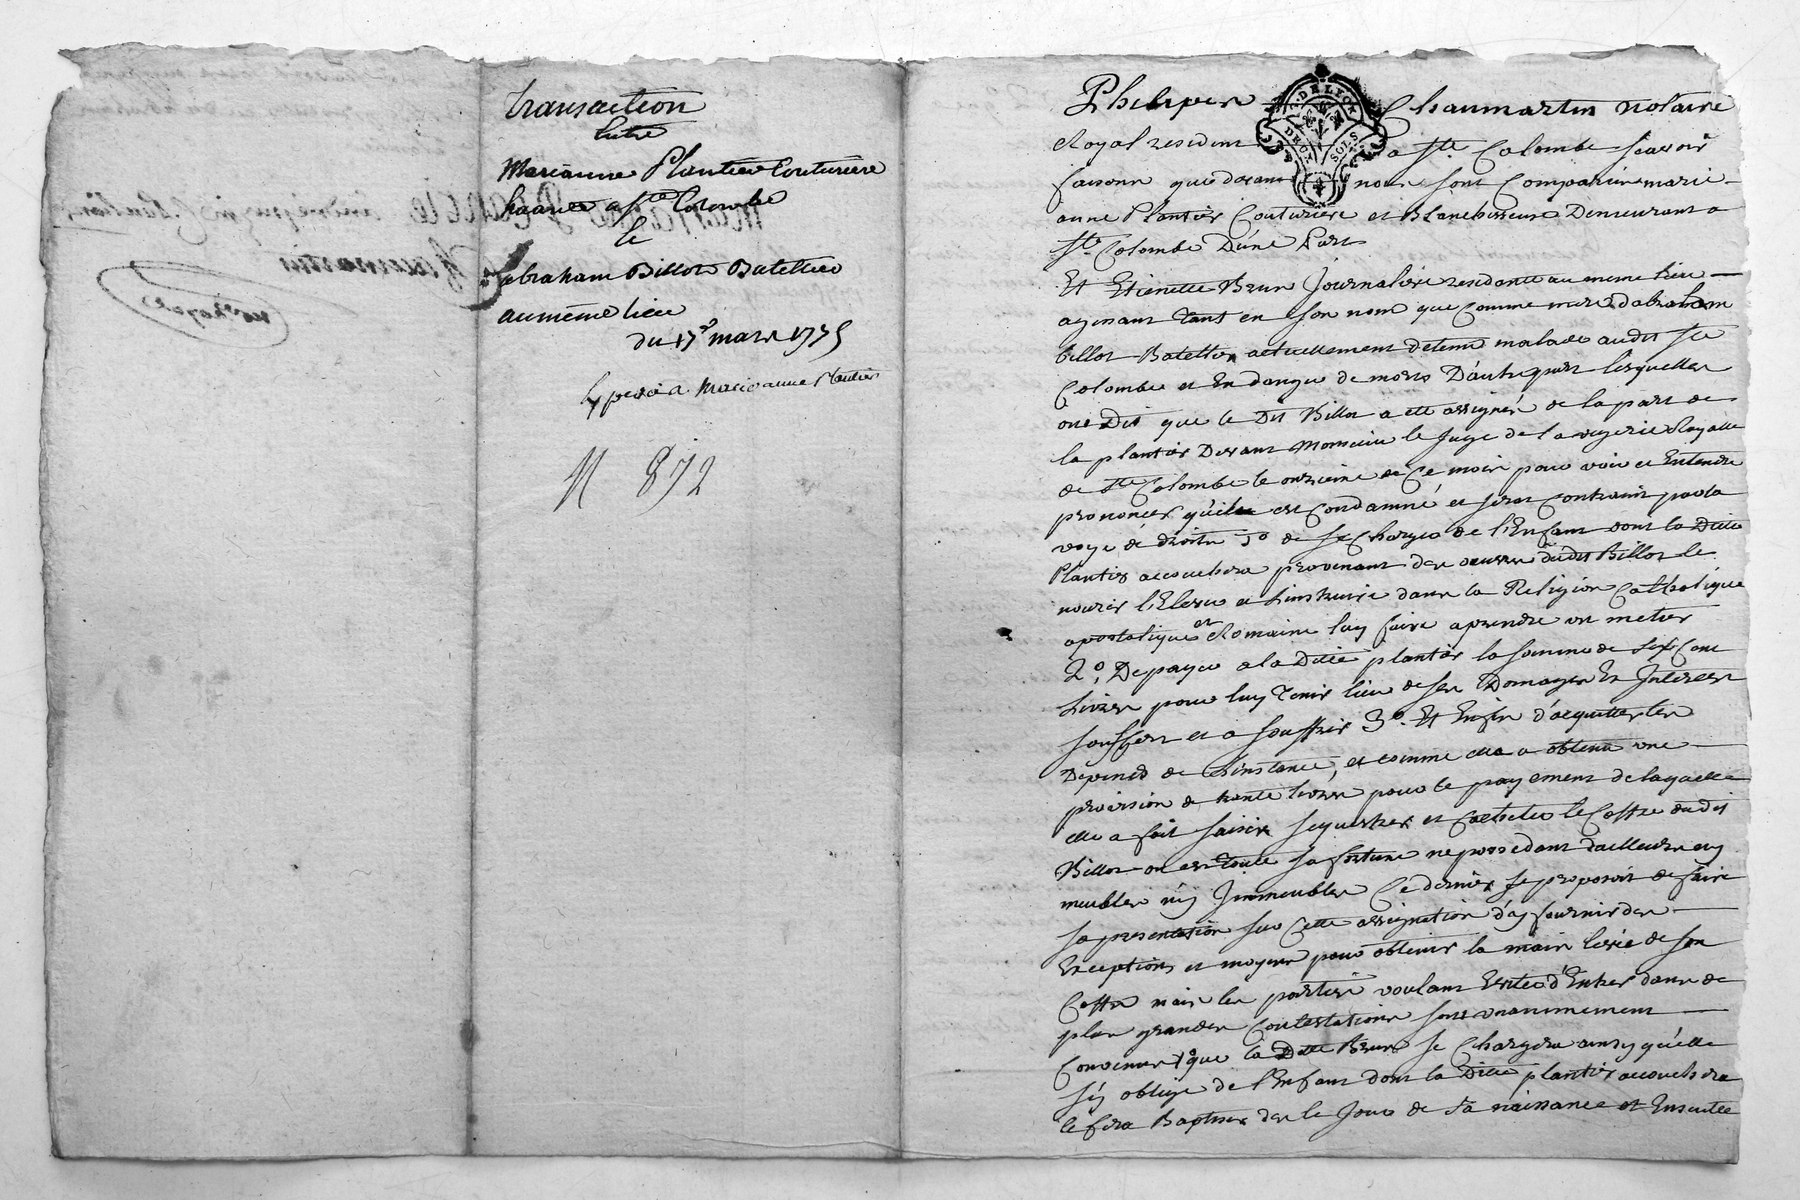 transaction
Entre
Marianne Plantier Couturiere
a Ste Colombe
Et
abraham Billot Batellier
au meme lieu
du 17e mars 1775
Expedié a Marie anne Plantier
N 872
Philipes Chaumartin notaire
G. DE LYON
DEUX SOLS
Royal resident a Ste Colombe Scavoir
faisons que devant nous sont Comparus marie
anne Plantier Couturiere et Blanchisseuse Demeurant a
Ste Colombe D'une Part
Et Etienette Brun Journaliere residante au meme lieu
agissant tant en son nom que Comme mere d'abraham
billot Batellier actuellement detenu malade audit Ste
Colombe et En danger de mort D'autre part lesquelles
ont Dit que le Dit Billot a été assigné de la part de
la plantier Devant Monsieur le Juge de la vigerie Royalle
de Ste Colombe le onzieme de Ce mois pour voir et Entendre
prononcer qu'il est Condamné et sera Contraint par la
voye de droit 1o de se Charger de l'Enfant dont la Ditte
Plantier accouchera provenant des œuvres dudit Billot le
nourir l'Elever et L'instruire dans la Religion Catholique
apostolique et Romaine luy faire aprendre un metier
2o. De payer a la Ditte plantier la somme de six Cent
Livres pour luy Tenir lieu de ses Domages Et Interets
souffert et a souffrir 3o. Et Enfin d'acquitter les
Depends de L'instance, et comme elle a obtenu une
provision de trente livres pour le payement de laquelle
elle a fait saisir sequestrer et Cacheter le Coffre dudit
Billot ou est Toute sa fortune ne possedant dailleurs ny
meubles ny Immeubles Ce dernier se proposoit de faire
sa presentation sur Cette assignation d'y fournir des
Exceptions et moyens pour obtenir la main levée de son
Coffre mais les parties voulant Eviter d'Entrer dans de
plus grandes Contestations sont unanimement
Convenus 1o que la Ditte Brun se Chargera ainsy qu'elle
s'y oblige de l'Enfant dont la Ditte plantier accouchera
le fera Baptiser des le Jour de sa naissance et Ensuitte